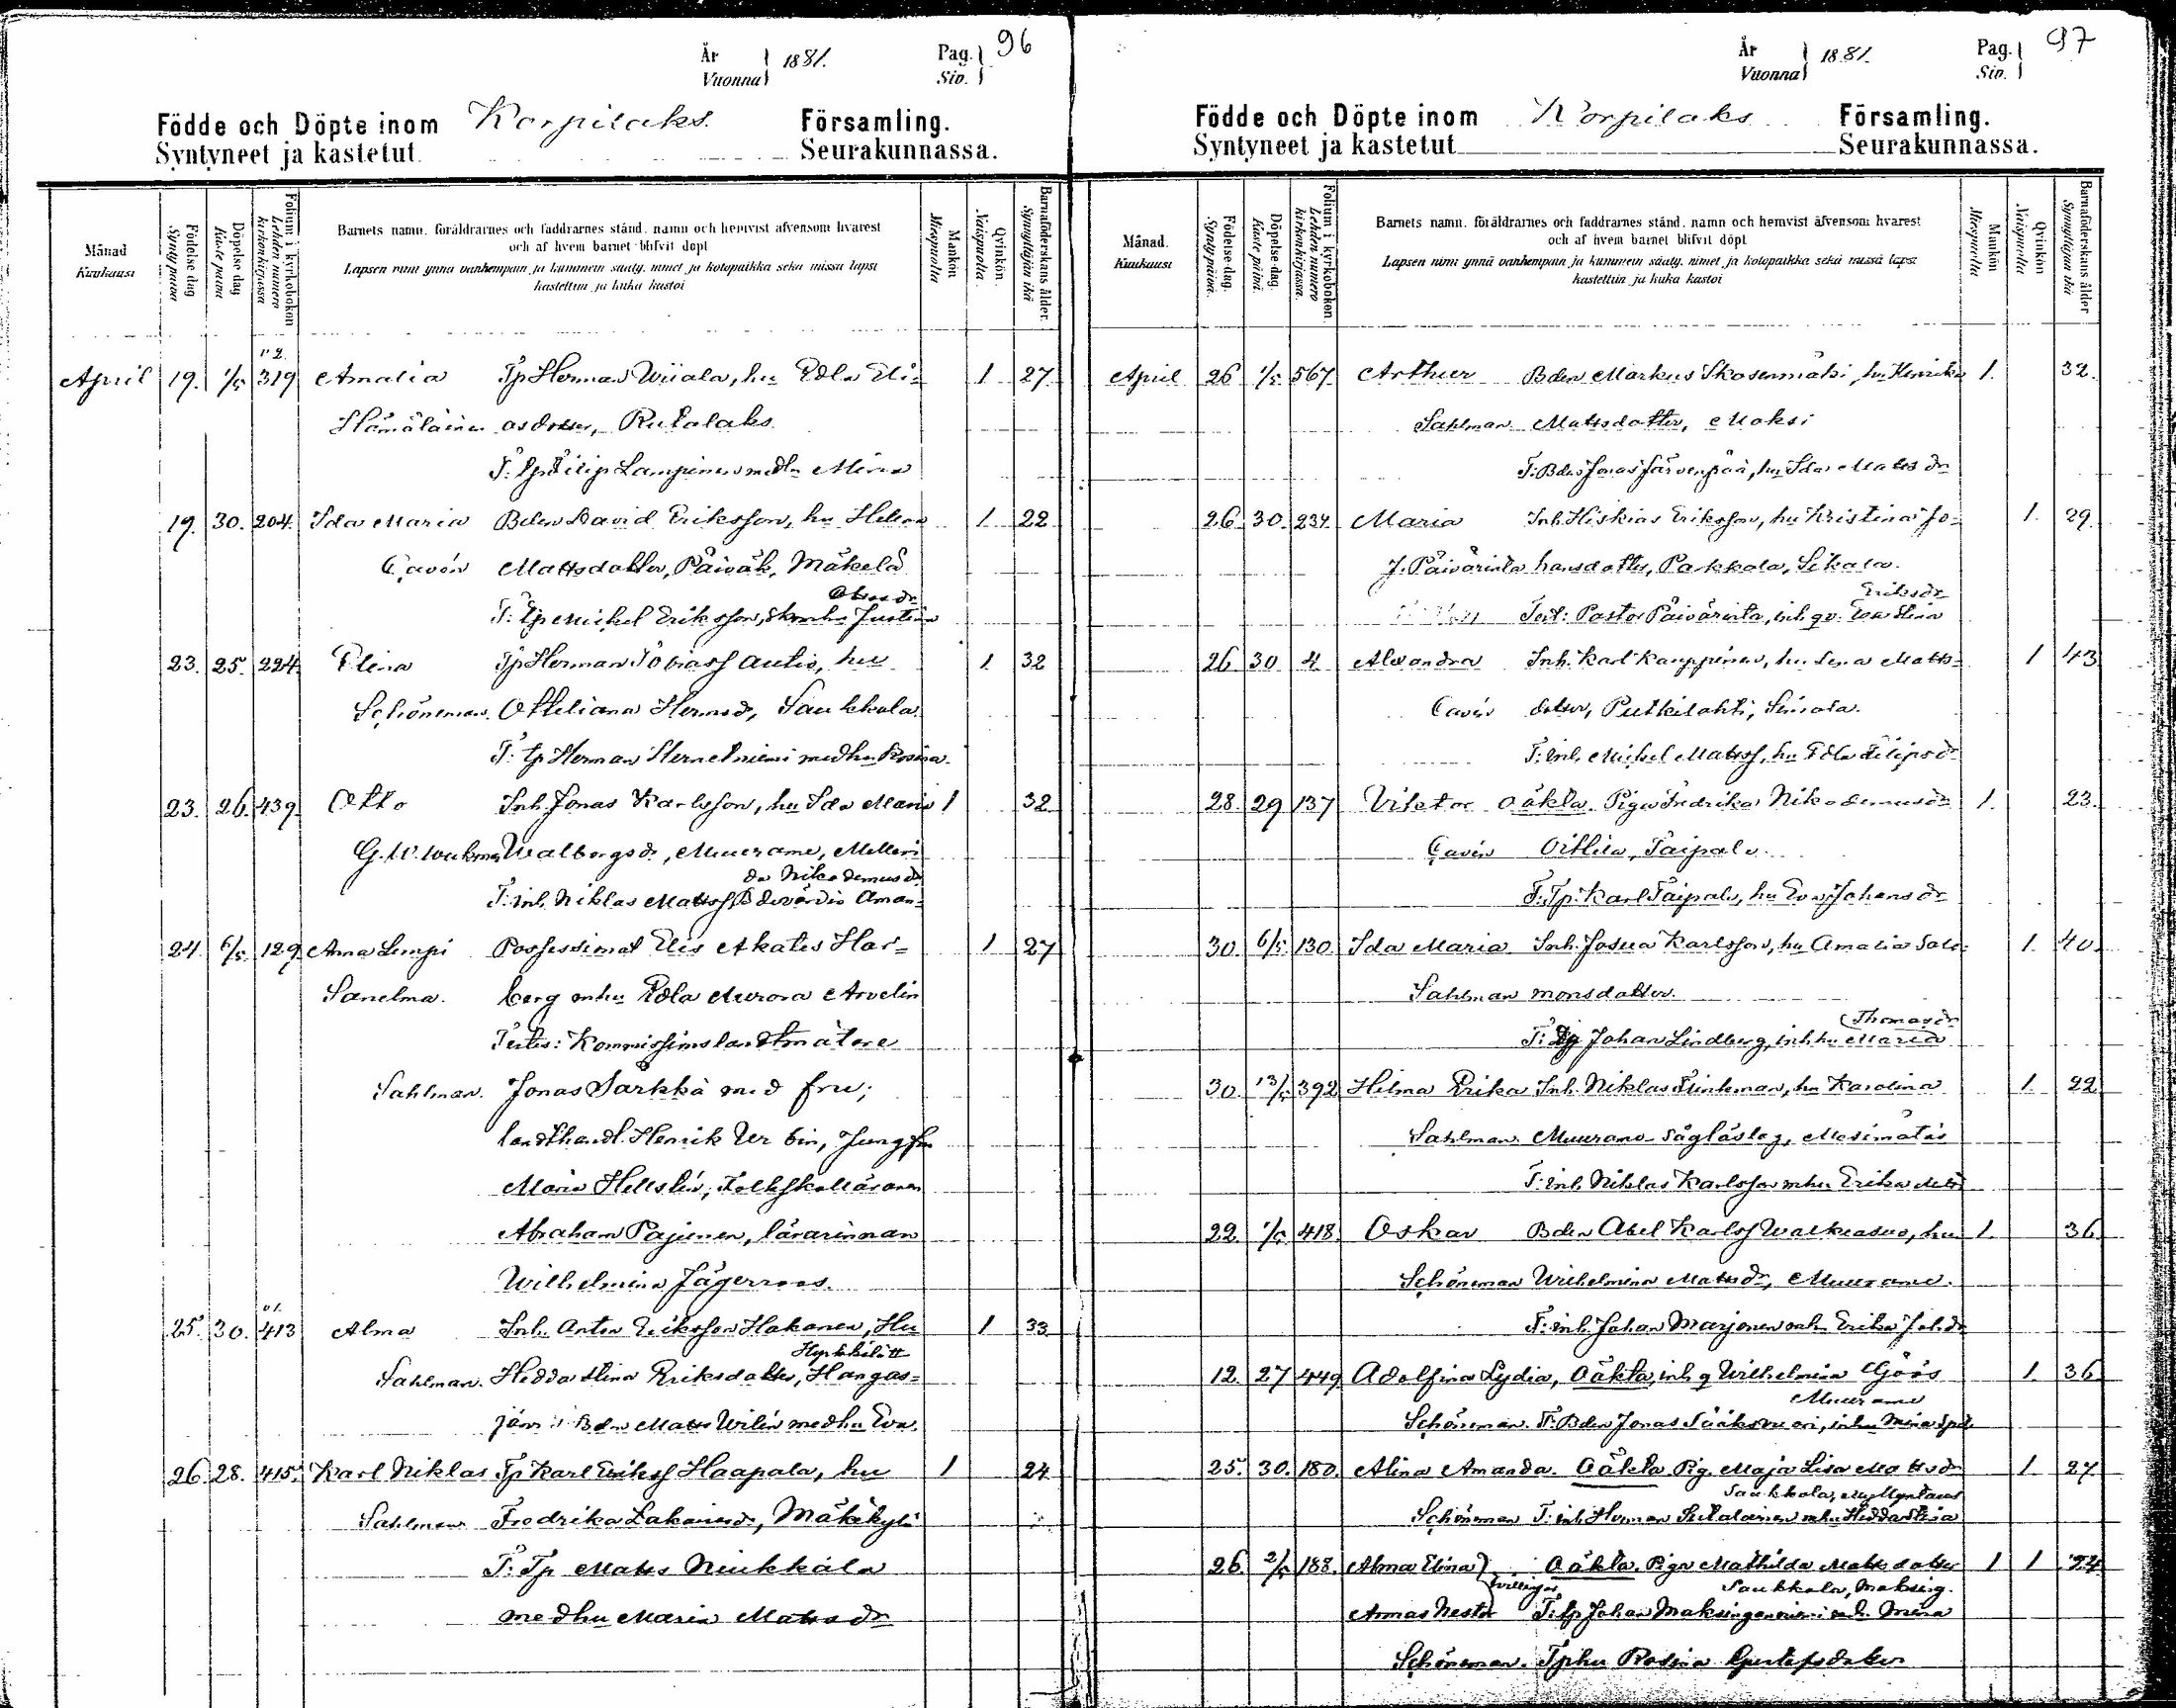 År
Vuonna
1881.
Pag.
Siv.
96
Födde och Döpte inom Korpilaks. Församling.
Syntyneet ja kastetut Seurakunnassa.
Månad
Kuukausi
Födelse dag
Synty päivä
Döpelse dag
Kaste päivä
Folium i kyrkoboken
Lehden numero kirkonkirjassa
Barnets namn, föräldrarnes och faddrarnes stånd, namn och hemvist äfvensom hvarest
och af hvem barnet blifvit döpt
Lapsen nimi ynnä vanhempain ja kummein sääty, nimet ja kotopaikka sekä missä lapsi
kastettiin ja kuka kastoi
Mankön
Miespuolia
Qvinkön.
Naispuolia.
Barnaföderskans ålder.
Synnyttäjän ikä
April 19. 1/5 319 Amalia Tp Herman Wiiala, hu Edla Eli= 1 27
Hämäläinen asdotter, Rutalaks
T: Filip Lampinen Mina
19. 30. 204. Ida Maria Bden David Eriksson, hu Helena 1 22
Cavén Mattsdotter, Päiväk, Mäkelä
T: Michel Eriksson, Justina
23. 25. 224. Elina Tp Herman Tobiass Autio, hu 1 32
Schöneman. Otteliana Hermsdr, Saukkola.
T: tp Herman Hernetniemi med hu Rosina.
23. 26. 439. Otto Inh. Jonas Karlsson, hu Ida Maria 1 32
G.W. Walborgsdr, Muurame,
Nikodemusdr
T: inh. Niklas Mattss, Aman=
24. 6/5. 129. Anna Lempi Possessionat Elis Akates Har= 1 27
Sanelma. berg hu Edla Aurora Arvelin
Testes: Kommissionslandtmätare
Sahlman. Jonas Sarkkä med fru;
landthandl. Henrik Jungfru
Maria Hellstén; Folkskolläraren
Abraham Pajunen, lärarinnan
Wilhelmina Jägerroos.
25. 30. 413 Alma Inh. Anton Eriksson Hakanen, Hu 1 33
Sahlman. Hedda Stina Eriksdotter, Hangas=
järvi T: Bdn Matts Wilén med hu Eva.
26. 28. 415. Karl Niklas Tp Karl Eriksf Haapala, hu 1 24
Sahlman Fredrika Mäkikylä
T: Tp Matts Niukkala
med hu Maria Mattsdr
År
Vuonna
1881.
Pag.
Siv.
97
Födde och Döpte inom Korpilaks Församling.
Syntyneet ja kastetut Seurakunnassa.
Månad.
Kuukausi
Födelse-dag.
Synty päivä.
Döpelse-dag.
Kaste päivä.
Folium i kyrkoboken.
Lehden numero kirkonkirjassa.
Barnets namn, föräldrarnes och faddrarnes stånd, namn och hemvist äfvensom hvarest
och af hvem barnet blifvit döpt
Lapsen nimi ynnä vanhempain ja kummein sääty, nimet ja kotopaikka sekä missä lapsi
kastettiin ja kuka kastoi
Mankön
Miespuolia
Qvinkön
Naispuolia
Barnaföderskans ålder
Synnyttäjän ikä
April 26 1/5 567 Arthur Bden Markus hu Henrika 1. 32.
Sahlman Mattsdotter, Moksi
T: Bden Jonas Järvenpää, hu Ida Mattsdr
26 30. 234. Maria Inh. Hiskias Eriksson, hu Kristina Jo= 1. 29.
J. Päivärinta hansdotter, Pakkala, Sikala.
Eriksdr
Test: Pastor Päivärinta, inh. qv. Eva Stina
26 30 4 Alexandra Inh. Karl Kauppinen, hu Lena Matts= 1 43
Cavén dotter, Putkilahti,
T: inh. Michel Mattsf, hu Edla Filipsdr
28. 29 137 Viktor Oäkta. Pigan Fredrika Nikodemusdr 1. 23.
Cavén Oittila, Taipale.
T: Tp. Karl Taipale, hu Eva Johansdr
30. 6/5 130. Ida Maria Inh. Josua Karlsson, hu Amalia Salo= 1. 40.
Sahlman monsdotter.
Thomasdr
T: Johan Lindberg, inh. hu Maria
30. 13/5 392 Hilma Erika Inh. Niklas hu Karolina 1. 22
Sahlman. Muurame
T: inh. Niklas Karlsson hu Erika
22. 1/5 418. Oskar Bden Abel Karlsf Walkeasuo, hu 1. 36
Schöneman Wilhelmina Mattsdr, Muurame.
T: inh. Johan Marjonen Erika Joh.dr
12. 27 449 Adolfina Lydia, Oäkta, inh. q Wilhelmina Göös 1. 36
Muurame
Schöneman. T: Bden Jonas Mina
25. 30. 180. Alina Amanda. Oäkta Pig. Maja Lisa Mattsdr 1. 27
Saukkola,
Schöneman T: inh. Herman Hedda Stina
26. 2/5 188. Alma Elina Oäkta. Pigan Mathilda Mattsdotter 1 1 24
tvillingar Saukkola,
Armas Nestor T: Tp Johan Mina
Schöneman. Tp hu Rosina Gustafsdotter